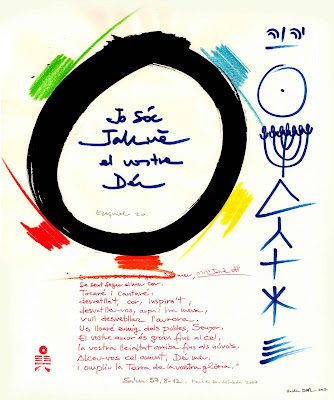 יהוה
Jo Sóc
Jahvè
el vostre
Déu
Ezequiel 20
El meu cor, M'he sentit
Se sent segur el meu cor.
Tocaré i cantaré:
desvetlla't, cor, inspira't,
desvetlla-vos, arpa i lira meva,
vull desvetllar l'aurora.
Us lloaré enmig dels pobles, Senyor.
El vostre amor és gran fins al cel,
la vostra lleialtat arriba fins als núvols.
Alceu-vos cel amunt, Déu meu,
i ompliu la Terra de la vostra glòria."
Salm 57, 8-12.